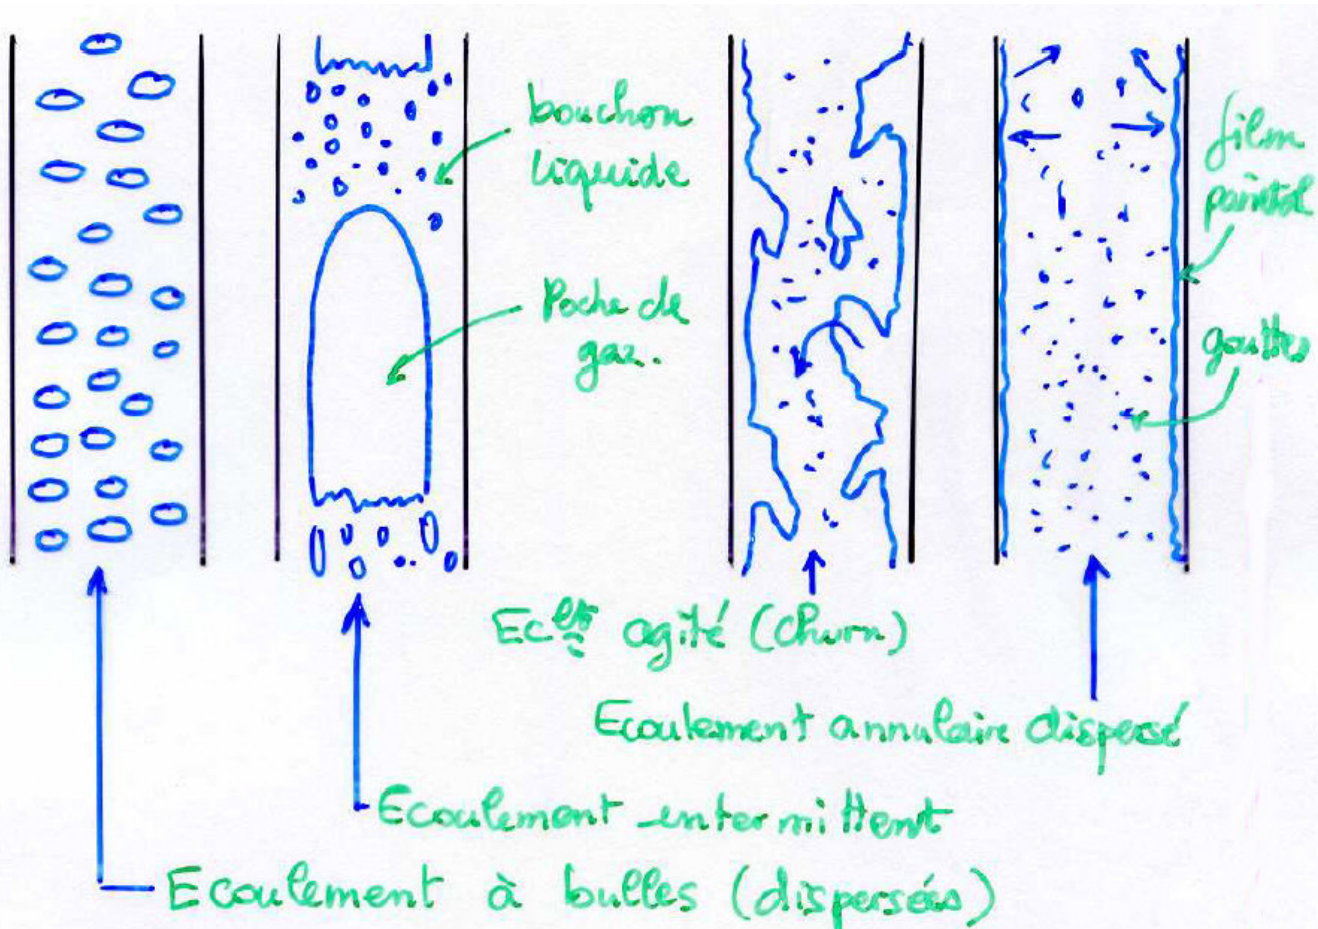 bouchon
liquide
Poche de
gaz.
film
pariétal
gouttes
Ec^lt agité (churn)
Ecoulement annulaire dispersé
Ecoulement intermittent
Ecoulement à bulles (dispersées)